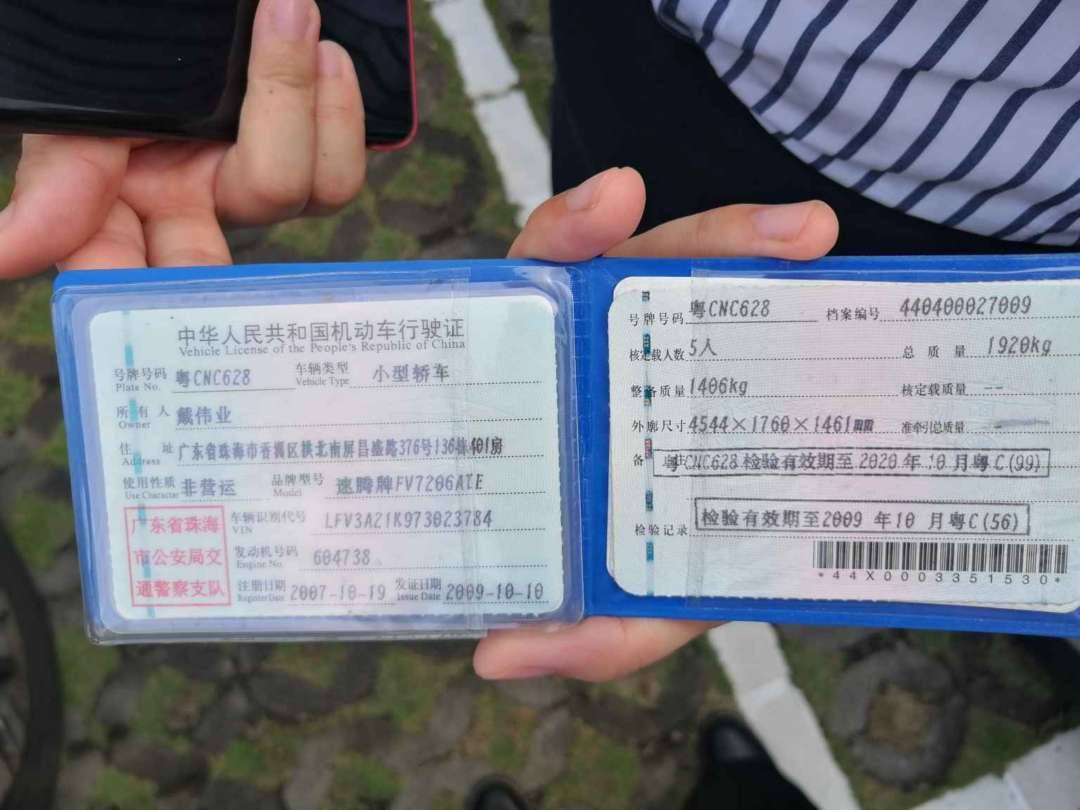 中华人民共和国机动车行驶证
Vehicle License of the People's Republic of China
号牌号码 粤CNC628 车辆类型 小型轿车
Plate No. Vehicle Type
所有人 戴伟业
Owner
住址 广东省珠海市香洲区拱北南屏昌盛路376号136栋401房
Address
使用性质 非营运 品牌型号 速腾牌FV7206ATE
Use Character Model
广东省珠海
市公安局交
通警察支队
车辆识别代号 LFV3A21K973023784
VIN
发动机号码 604738
Engine No.
注册日期 2007-10-19 发证日期 2009-10-10
Register Date Issue Date
号牌号码 粤CNC628 档案编号 440400027009
核定载人数 5人 总质量 1920kg
整备质量 1406kg 核定载质量 --
外廓尺寸 4544×1760×1461mm 准牵引总质量
备注 粤CNC628 检验有效期至 2020 年 10 月粤C(99)
检验有效期至2009 年10 月粤C(56)
检验记录
*44X0003351530*